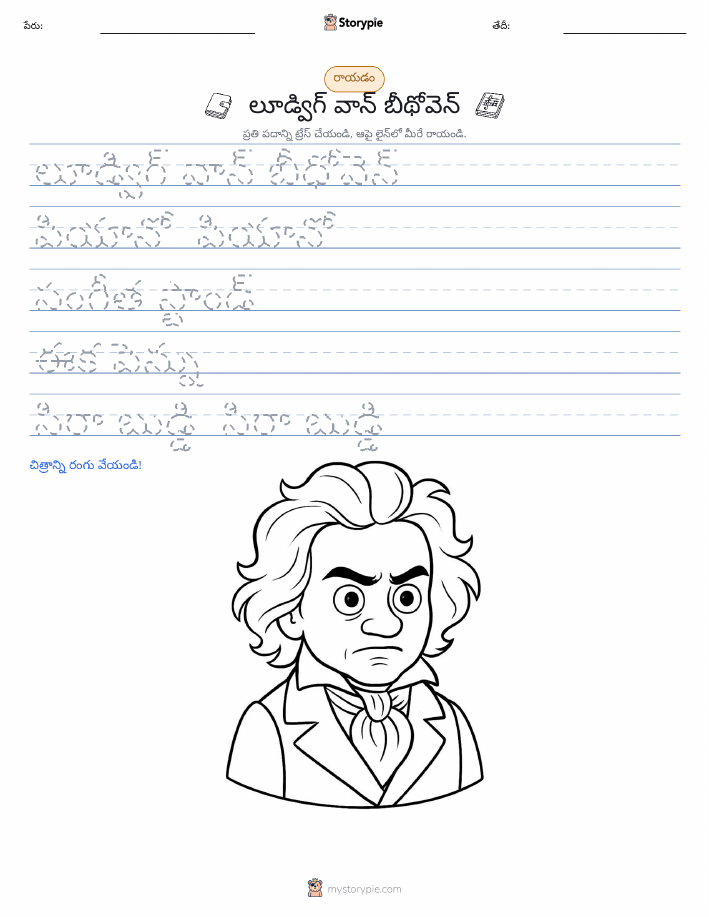 పేరు:
Storypie
తేదీ:
రాయడం
లూడ్విగ్ వాన్ బీథోవెన్
ప్రతి పదాన్ని ట్రేస్ చేయండి, ఆపై లైన్‌లో మీరే రాయండి.
లూడ్విగ్ వాన్ బీథోవెన్
పియానో పియానో
సంగీత స్టాండ్
ఈక పెన్ను
సిరా బుడ్డి సిరా బుడ్డి
చిత్రాన్ని రంగు వేయండి!
mystorypie.com